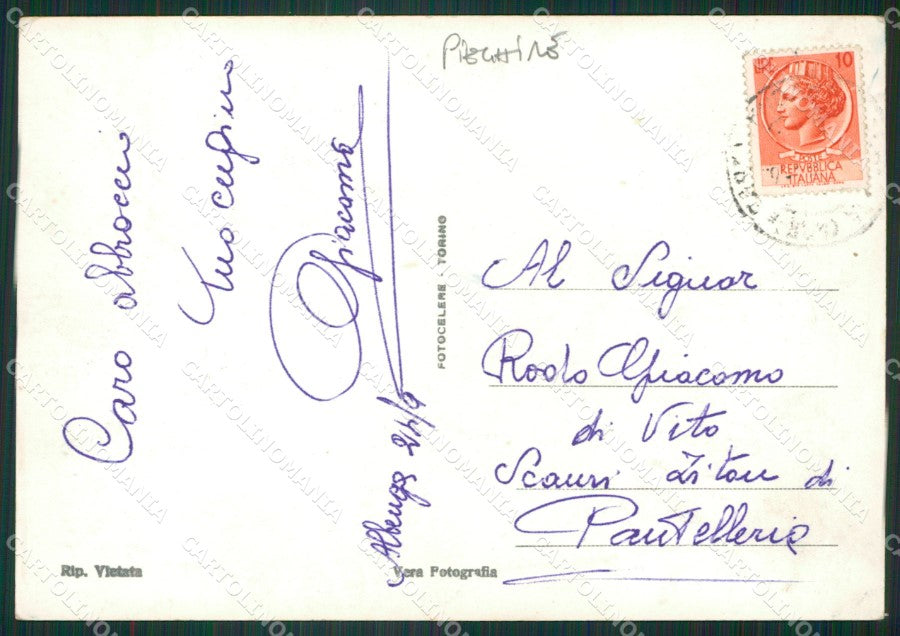 Caro abbraccio
Tuo cugino
Giacomo
Albenga 24/9
FOTOCELERE - TORINO
Rip. Vietata
Vera Fotografia
LIRE 10
POSTE
REPVBBLICA
ITALIANA
Al Signor
Rodo Giacomo
di Vito
Scauri Zitou di
Pantelleria
CARTOLINOMANIA